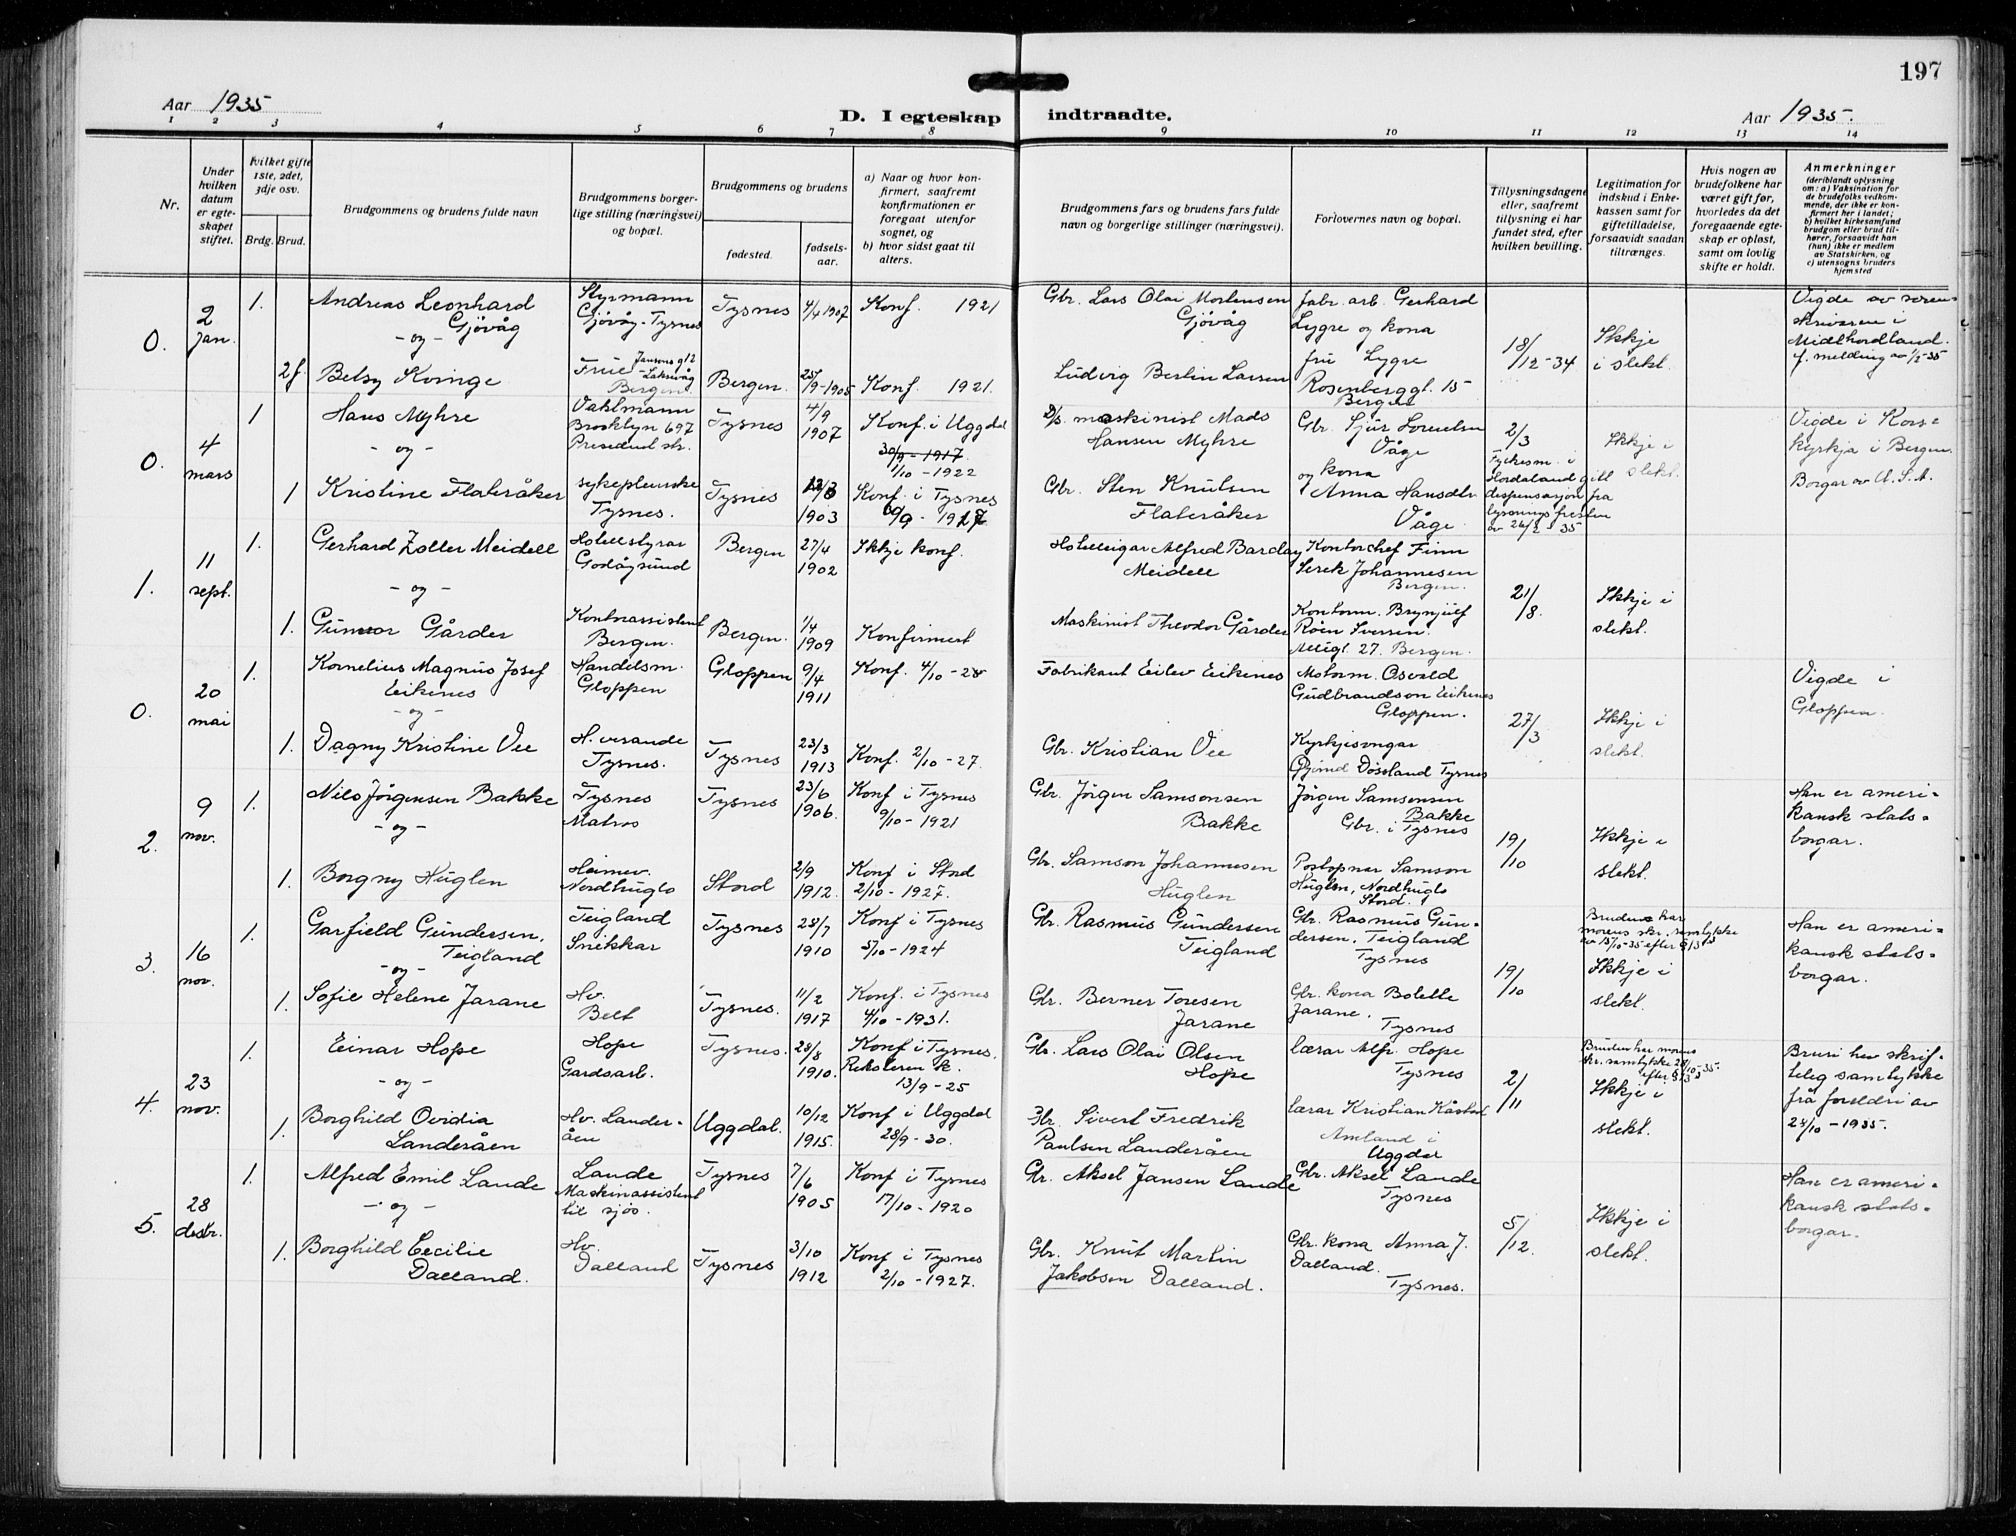 197
Aar 1935
D. I egteskap indtraadte.
Aar 1935.
1 2 3 4 5 6 7 8 9 10 11 12 13 14
Nr.
Under hvilken datum er egteskapet stiftet.
Hvilket gifte 1ste, 2det, 3dje osv.
Brdg. Brud.
Brudgommens og brudens fulde navn
Brudgommens borgerlige stilling (næringsvei) og bopæl.
Brudgommens og brudens
fødested.
fødselsaar.
a) Naar og hvor konfirmert, saafremt konfirmationen er foregaat utenfor sognet, og
b) hvor sidst gaat til alters.
Brudgommens fars og brudens fars fulde navn og borgerlige stillinger (næringsvei).
Forlovernes navn og bopæl.
Tillysningsdagene eller, saafremt tillysning ei har fundet sted, efter hvilken bevilling.
Legitimation for indskud i Enkekassen samt for giftetilladelse, forsaavidt saadan tiltrænges.
Hvis nogen av brudefolkene har været gift før, hvorledes da det foregaaende egteskap er opløst, samt om lovlig skifte er holdt.
Anmerkninger
(deriblandt oplysning om: a) Vaksination for de brudefolks vedkommende, der ikke er konfirmert her i landet; b) hvilket kirkesamfund brudgom eller brud tilhører, forsaavidt han (hun) ikke er medlem av Statskirken, og c) utensogns bruders hjemsted
0. 2 jan. 1. Andreas Leonhard Gjövåg
Styrmann Gjövåg-Tysnes
Tysnes 4/4 1907 Konf. 1921
Gbr. Lars Olai Mortensen Gjövåg
fabr. arb. Gerhard Lygre og kona fru Lygre Rosenberggt. 15 Bergen
18/12-34
Ikkje i slekt.
Vigde av sorenskrivaren i Midthordland. f. meldning av 1/2-35
- og -
2g Betsy Kvinge
Frue Jansons g 12 - Laksevåg Bergen.
Bergen. 25/9-1905 Konf. 1921.
Ludvig Bertin Larsen
0. 4 mars 1 Hans Myhre
Vaktmann Brooklyn 697 President str.
Tysnes 4/9 1907 Konf. i Uggdal 30/9-1917 1/10-1922
D/s. maskinist Mads Hansen Myhre
Gbr. Sjur Lorentsen Våge og kona Anna Hansdtr. Våge
2/3
Fylkesm. i Hordaland gitt dispensasjon fra lysnings fristen av 26/2-35
Ikkje i slekt.
Vigde i Korskyrkja i Bergen. Borgar av U.S.A.
- og -
1 Kristine Flateråker
sykepleierske Tysnes.
Tysnes 1903 Konf. i Tysnes
Gbr. Sten Knutsen Flateråker
1. 11 sept. 1. Gerhard Zoller Meidell
Hotellstyrar Godøysund
Bergen 27/4 1902 Ikkje konf.
Hotelleigar Alfred Barclay Meidell
Kontorchef Finn Serck Johannesen Bergen.
21/8.
Ikkje i slekt.
- og -
1. Gunvor Gårder
Kontorassistent Bergen.
Bergen. 1/4 1909 Konfirmert
Maskinist Theodor Gårder
Kontorm. Brynjulf Röen Iversen. Allegt. 27. Bergen.
0. 20 mai 1. Kornelius Magnus Josef Eikenes
Handelsm. Gloppen
Gloppen 9/4 1911 Konf. 4/10-28
Fabrikant Eilev Eikenes
Motorm. Osvald Gudbrandson Eikenes Gloppen.
27/3
Ikkje i slekt.
Vigde i Gloppen.
- og -
1. Dagny Kristine Vee
H. verande Tysnes.
Tysnes 23/3 1913 Konf. 2/10-27.
Gbr. Kristian Vee
Kyrkjesongar Gjömd Dössland Tysnes
2. 9 nov. 1. Nils Jörgensen Bakke
Tysnes Matros
Tysnes 23/6 1906. Konf i Tysnes 9/10-1921
Gbr. Jörgen Samsonsen Bakke
Jörgen Samsonsen Bakke Gbr. i Tysnes
19/10
Ikkje i slekt.
Han er amerikansk statsborgar.
- og -
1. Borgny Huglen
Heimev. Nordhuglo
Stord 2/9 1912. Konf i Stord 2/10-1927.
Gbr. Samson Johannesen Huglen
Postopnar Samson Huglen, Nordhuglo Stord.
3. 16 nov. 1. Garfield Gundersen Teigland
Teigland Snikkar
Tysnes 28/7 1910 Konf i Tysnes 5/10-1924
Gbr. Rasmus Gundersen Teigland
Gbr. Rasmus Gundersen, Teigland Tysnes
19/10
Brudene har morens skr. samtykke av 15/10-35 efter § 13
Ikkje i slekt.
Han er amerikansk statsborgar.
- og -
1. Sofie Helene Jarane
Hv. Belt
Tysnes. 11/2 1917 Konf. i Tysnes 4/10-1931.
Gbr. Berner Toresen Jarane
Gbr. kona Bolette Jarane, Tysnes
4. 23 nov. 1. Einar Hope
Hope Gardsarb.
Tysnes. 28/8 1910. Konf i Tysnes. Reksteren k. 13/9-25
Gbr. Lars Olai Olsen Hope
lærar Alfr. Hope Tysnes
2/11
Bruden har morens skr. samtykke 28/10-35. efter § 13
Ikkje i slekt.
Bruri hev skrifteleg samtykke frå foreldri av 28/10-1935.
- og -
1. Borghild Ovidia Landeråen
Hv. Landeråen
Uggdal. 10/12 1915. Konf i Uggdal 28/9-30.
Gbr. Sivert Fredrik Paulsen Landeråen
lærar Kristian Kåstad Amland i Uggdal
5. 28 desbr. 1. Alfred Emil Lande
Lande Maskinassistent til sjøs.
Tysnes 7/6 1905 Konf i Tysnes 17/10-1920
Gbr. Aksel Jansen Lande
Gbr. Aksel Lande Tysnes
5/12.
Ikkje i slekt.
Han er amerikansk statsborgar.
- og -
1. Borghild Cecilie Dalland.
Hv. Dalland
Tysnes 3/10 1912 Konf i Tysnes 2/10-1927.
Gbr. Knut Martin Jakobsen Dalland.
Gbr. kona Anna J. Dalland. Tysnes.